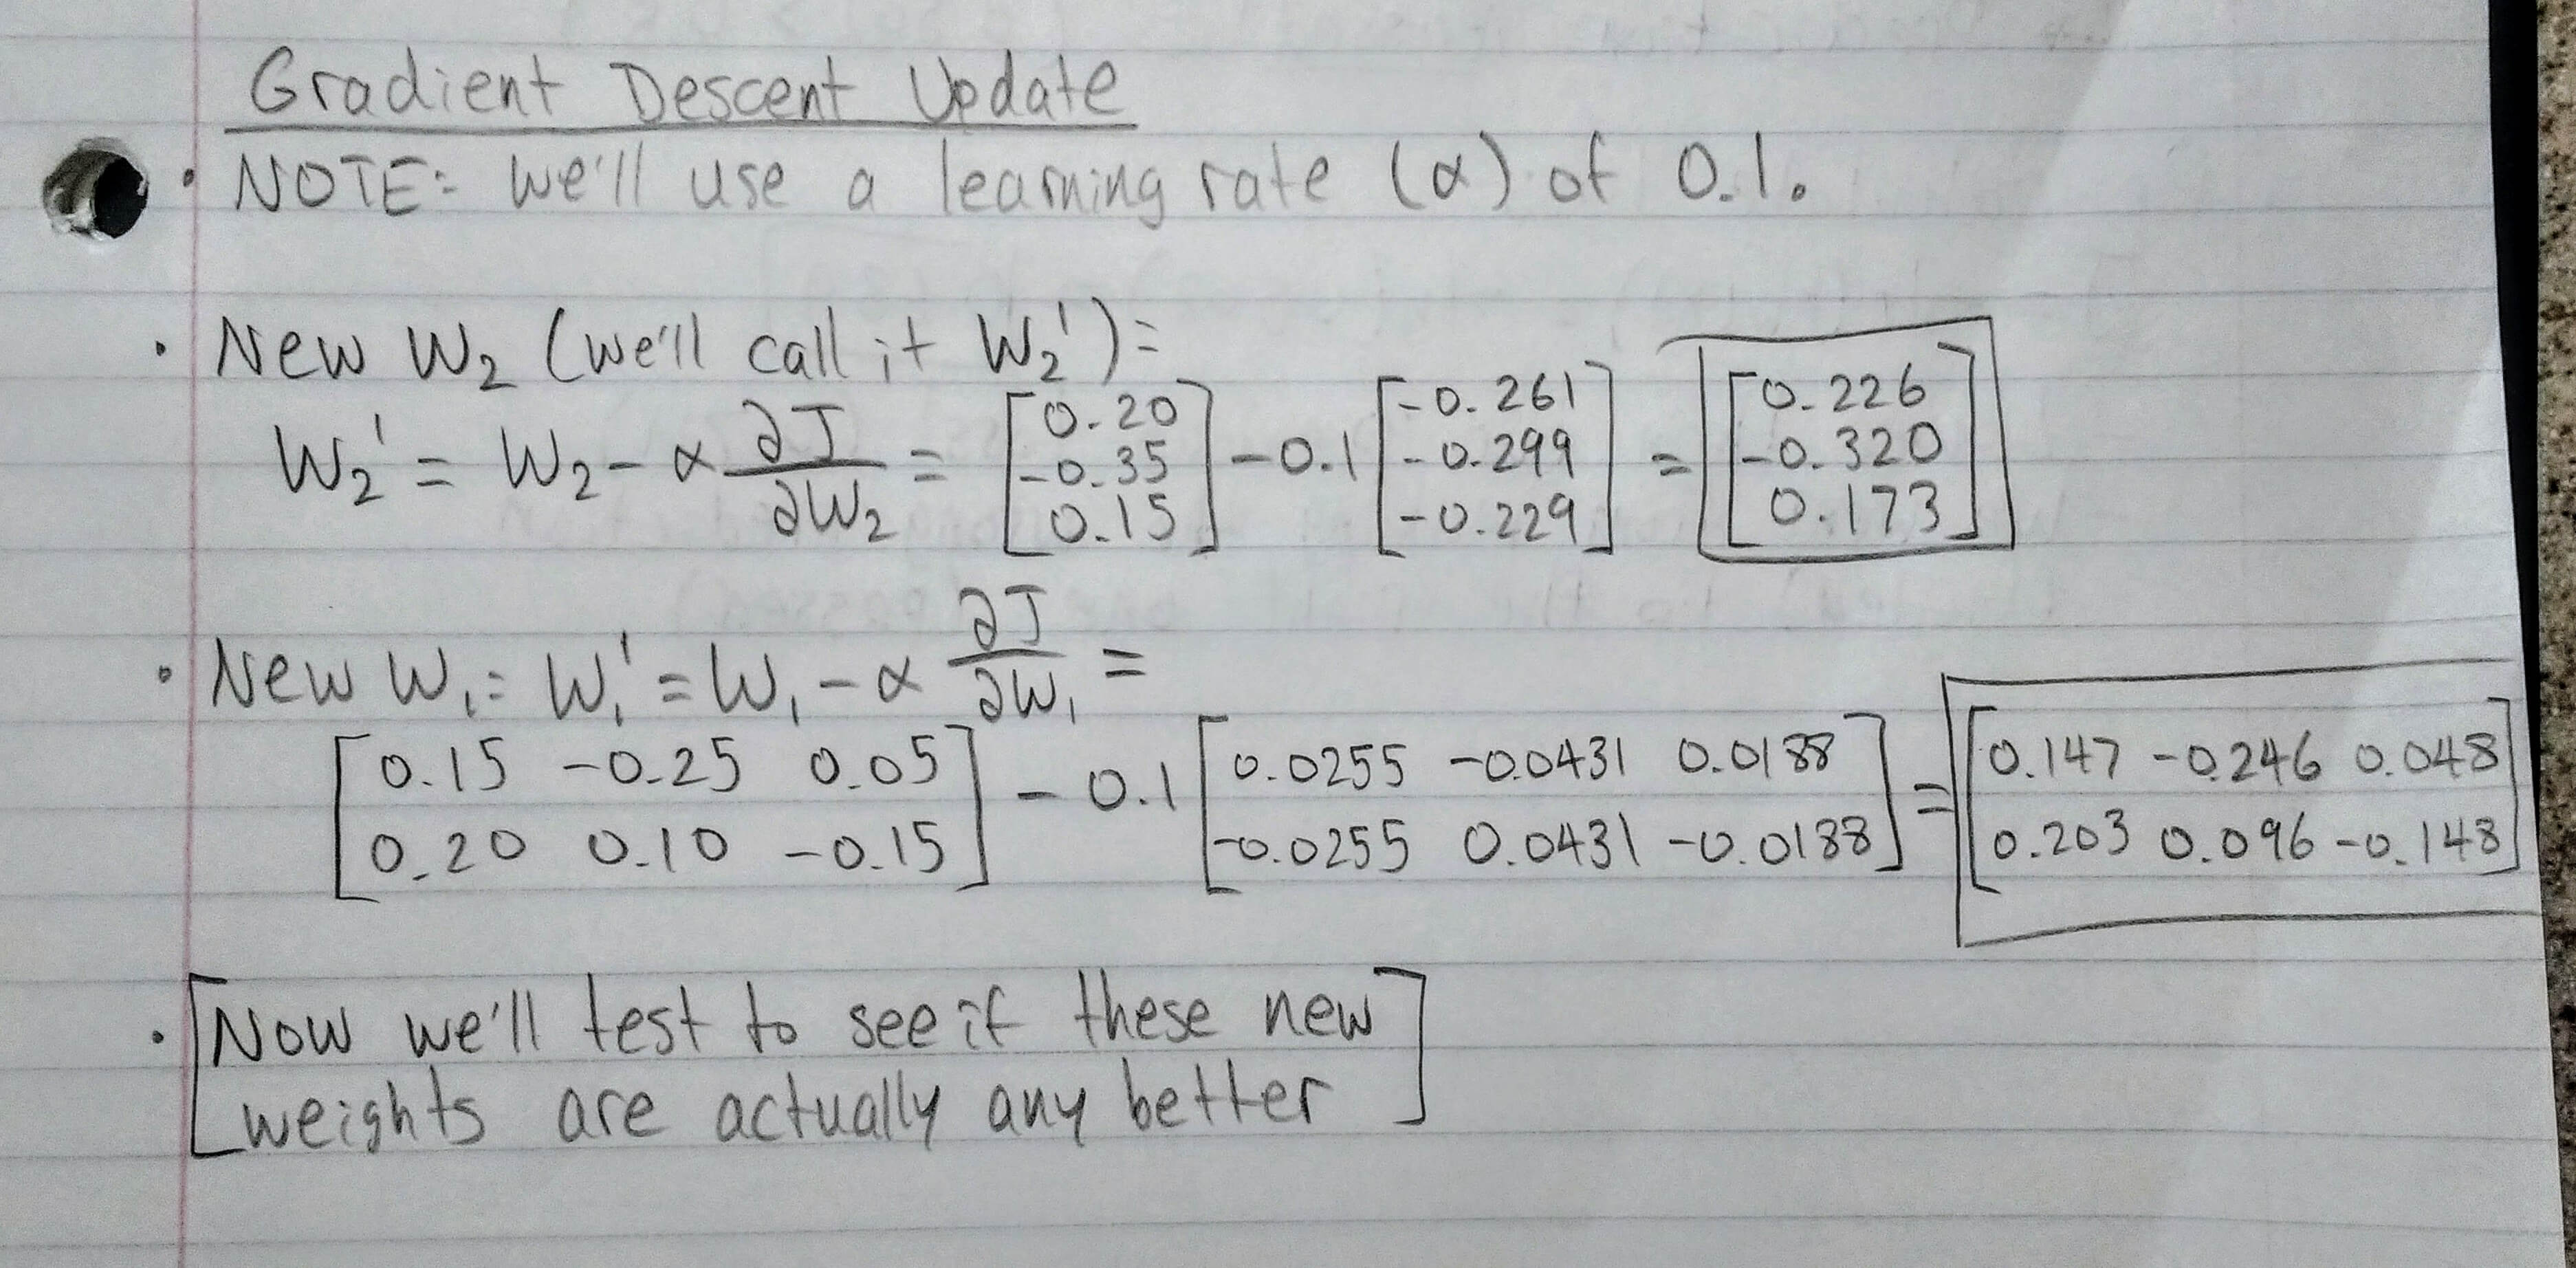 Gradient Descent Update
• NOTE: We'll use a learning rate (α) of 0.1.
• New W₂ (we'll call it W₂'):
W₂' = W₂ - α ∂J/∂W₂ = [0.20 -0.35 0.15] - 0.1 [-0.261 -0.299 -0.229] = [0.226 -0.320 0.173]
• New W₁: W₁' = W₁ - α ∂J/∂W₁ =
[0.15 -0.25 0.05] - 0.1 [0.0255 -0.0431 0.0188] = [0.147 -0.246 0.048]
[0.20 0.10 -0.15] [-0.0255 0.0431 -0.0188] [0.203 0.096 -0.148]
• [Now we'll test to see if these new
weights are actually any better]